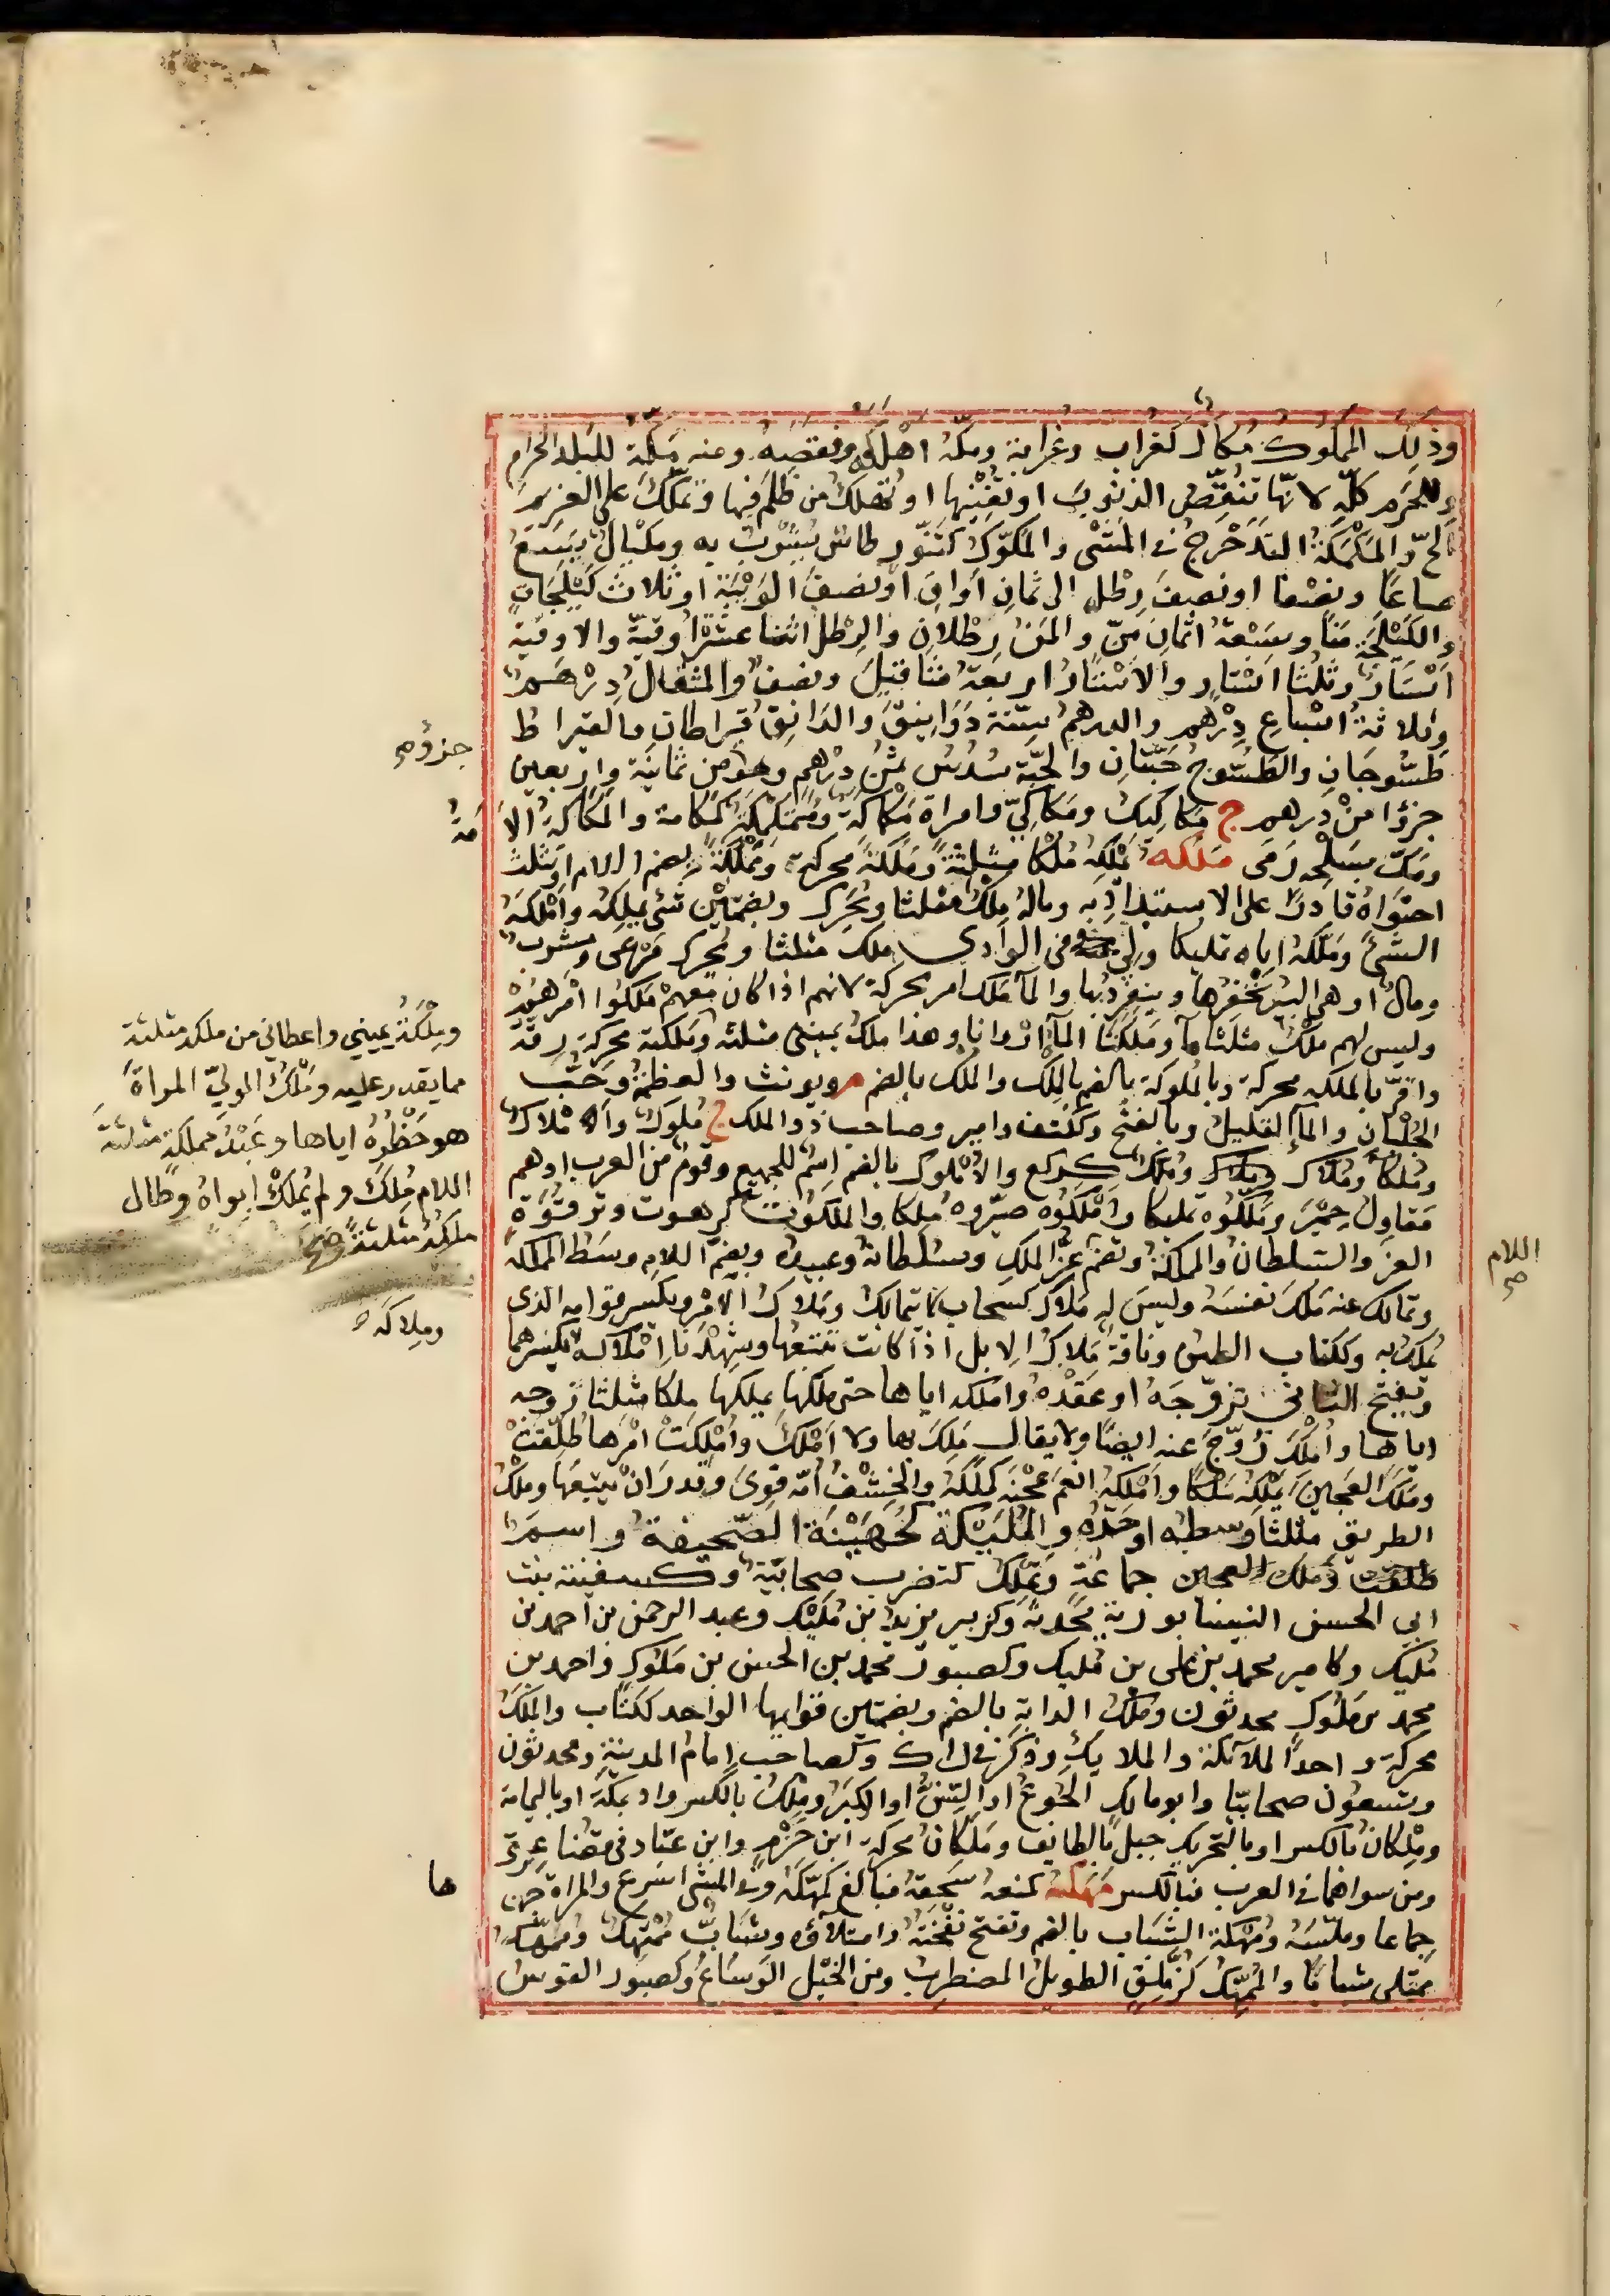 وذلك الممكوك مُكاك كغراب وغرابة ومكّه اهلكه ونقصه ومنه مكّة للبلد الحرام
وللحَرَم كلّه لانّها تنقّص الذنوب او تفنيها او تهلك من ظلم فيها وتمكّك على الغريم
الحّ والمَكْمَكَة التدحرج في المشي والمَكّوك كتنّور طاس يشرب به ومكيال يسع
صاعًا ونصفا او نصف رطل الى ثمان اواق او نصف الويبة او ثلاث كيلجات
والكيلجة منًا وسبعة اثمان منّ والمن رطلان والرطل اثنتا عشرة اوقية والاوقية
اسْتار وثلثا استار والاستار اربعة مثاقيل ونصف والمثقال درهم
وثلاثة اسباع درهم والدرهم ستة دوانيق والدانق قيراطان والقيراط
طسّوجان والطسّوج حبّتان والحبّة سدس ثمن درهم وهو من ثمانية واربعين
جزؤا من درهم ج مكاكيك ومكاكيّ وامراة مكماكة ومتمكمكة كمكامة والمكماكة الا مَة
ومكّ بسلحه رمى ملكه يملكه ملكا مثلثة وملكة محركة ومملكة بضم اللام او يثلث
احتواه قادرا على الاستبداد به وماله ملك مثلثا ويحرك وبضمتين شئ يملكه واملكه
الشئ وملّكه اياه تمليكا ولي في الوادي ملك مثلثا ويحرك مرعى ومشرب
ومال او هي البير تحفرها وينفرد بها والما ملك امر محركة لانهم اذا كان معهم ملكوا امرهم
وليس لهم ملك مثلثا ما وملكنا الما اروانا وهذا ملك يمينى مثلثة وملكة محركة رقة
واقرّ بالملكة محركة وبالملوكة بالضم بالملك والملك بالضم م ويونث والعظمة وحب
الجلبان والما القليل وبالفتح وككتف وامير وصاحب ذو الملك ج ملوك واملاك
وملكا وملاك وملك كركع والاملوك بالضم اسم للجمع وقوم من العرب او هم
مقاول حمير وملّكوه تمليكا واملكوه صيّروه ملكا والملكوت كرهوت وترقوة
العز والسلطان والمملكة وتضم عز الملك وسلطانه وعبيده وبضم اللام وسط المملكة
وتمالك عنه ملك نفسه وليس له ملاك كسحاب لا يتمالك وملاك الامر ويكسر قوامه الذى
يملك به وككتاب الطين وناقة ملاك الابل اذا كانت تتبعها وشهدنا املاكه بكسرهما
وبفتح الثاني تزوّجه او عقده واملكه اياها حتى ملكها يملكها ملكا مثلثا زوجه
اياها واملك زوّج عنه ايضا ولا يقال ملك بها ولا املك واملكت امرها طلّقت
وملك العجين يملكه ملكا واملكه انعم عجنه كملّكه والخشف امّه قوى وقدر ان يتبعها وملك
الطريق مثلثا وسطه او حدّه والمليكة كجهينة الصحيفة واسم
جماعة وتملك كتضرب صحابيّة وكسفينة بنت
ابي الحسن النيسابورية محدثة وكزبير يزيد بن مليك وعبد الرحمن بن احمد بن
مليك وكامير محمد بن على بن مليك وكصبور محمد بن الحسن بن ملوك واحمد بن
محمد بن ملوك محدثون وملك الدابة بالضم وبضمتين قوايمها الواحد ككتاب والملك
محركة واحد الملائكة والملايك وذكر في ل ا ك وكصاحب امام المدينة ومحدثون
وتسعون صحابيّا وابو مالك الجوع او السنّ او الكبر وملك بالكسر واد بمكة او باليمامة
وملكان بالكسر او بالتحريك جبل بالطايف وملكان محركة ابن حزم وابن عبّاد في قضاعة
ومن سواهما في العرب فبالكسر مهكه كمنعه سحقه فبالغ كمهّكه وفي المشي اسرع والمراة
جماعا وملّسه ومهكة الشباب بالضم وتفتح نفخته وامتلاؤه وشاب ممتهك وممهّك
ممتلى شبابا والممّهك كزملق الطويل المضطرب ومن الخيل الوساع وكصبور القوس
جزؤ صح
وملكة يميني واعطاني من ملكه مثلثة
مما يقدر عليه وملك الوليّ المراة
هو حظره اياها وعبد مملكة مثلثة
اللام مُلك ولم يُملك ابواه وطال
ملكه مثلثة صح
وملاكه
اللام
صح
ها